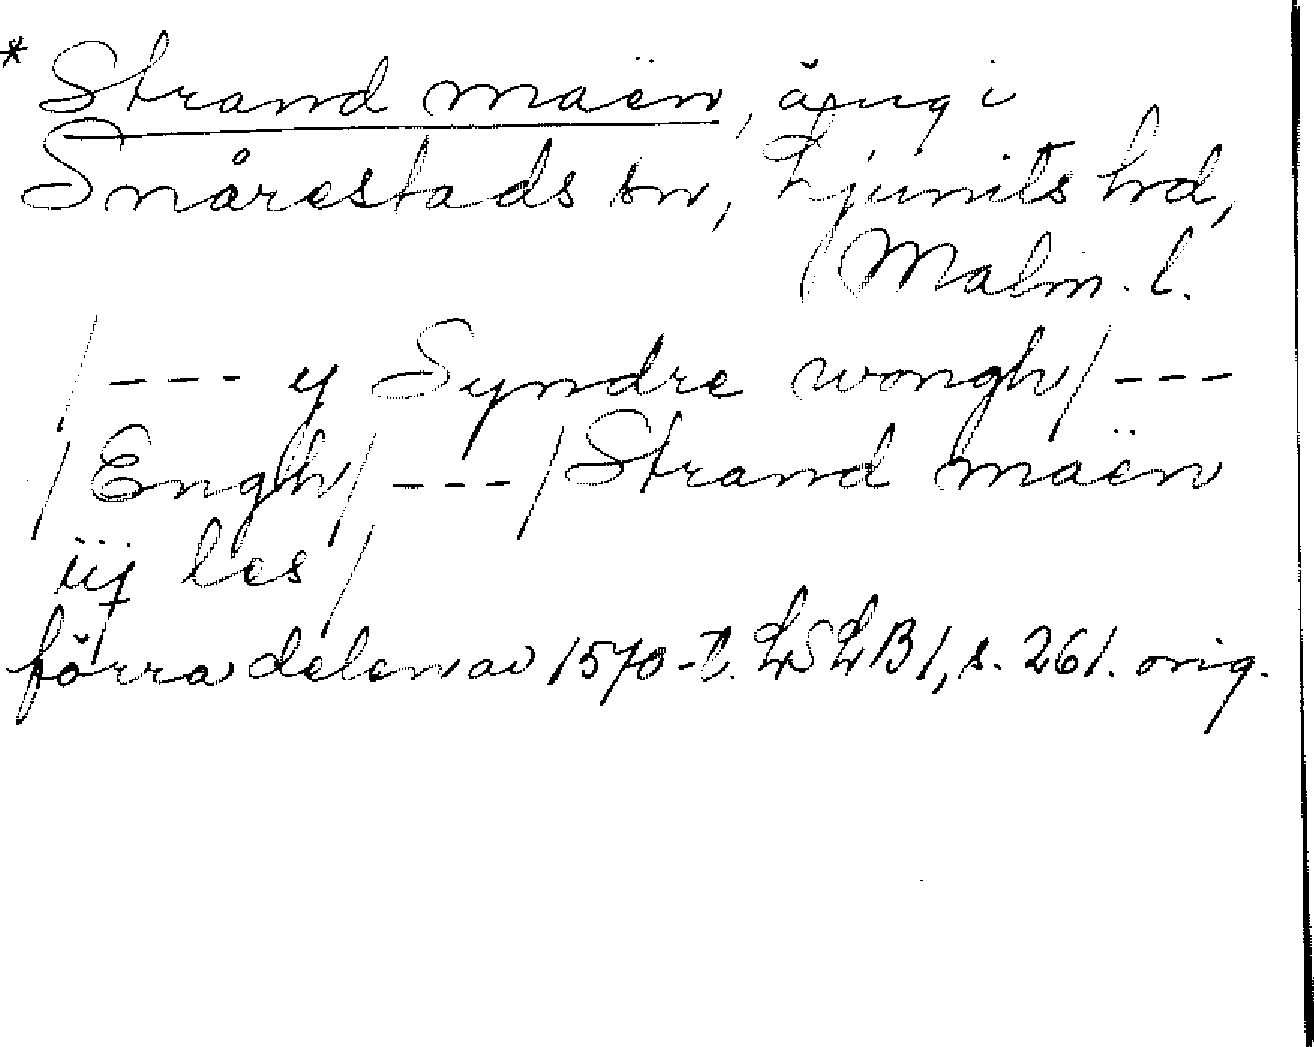 * Strand maën, äng i
Snårestads sn, Ljunits hd,
Malm. l.
/--- y Syndre wongh/ ---
/Engh/ --- /Strand maën
iij les/
förra delen av 1570-t. LSLB1, s. 261. orig.